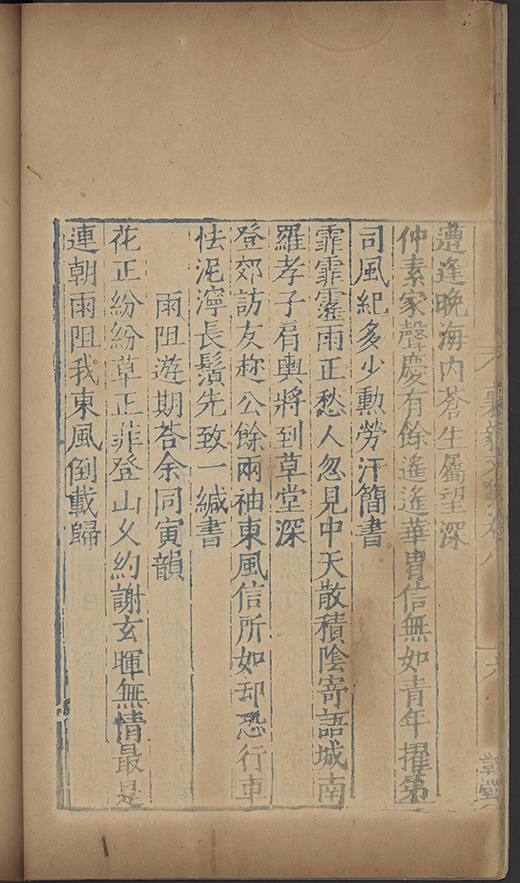 遭逢晚海內蒼生屬望深
仲素家聲慶有餘遙遙華胄信無如青年擢第
司風紀多少勲勞汗簡書
霏霏霪雨正愁人忽見中天散積陰寄語城南
羅孝子肩輿將到草堂深
登郊訪友趂公餘兩袖東風信所如却恐行車
怯泥濘長鬚先致一緘書
雨阻遊期荅余同寅韻
花正紛紛草正菲登山乆約謝玄暉無情最是
連朝雨阻我東風倒載歸